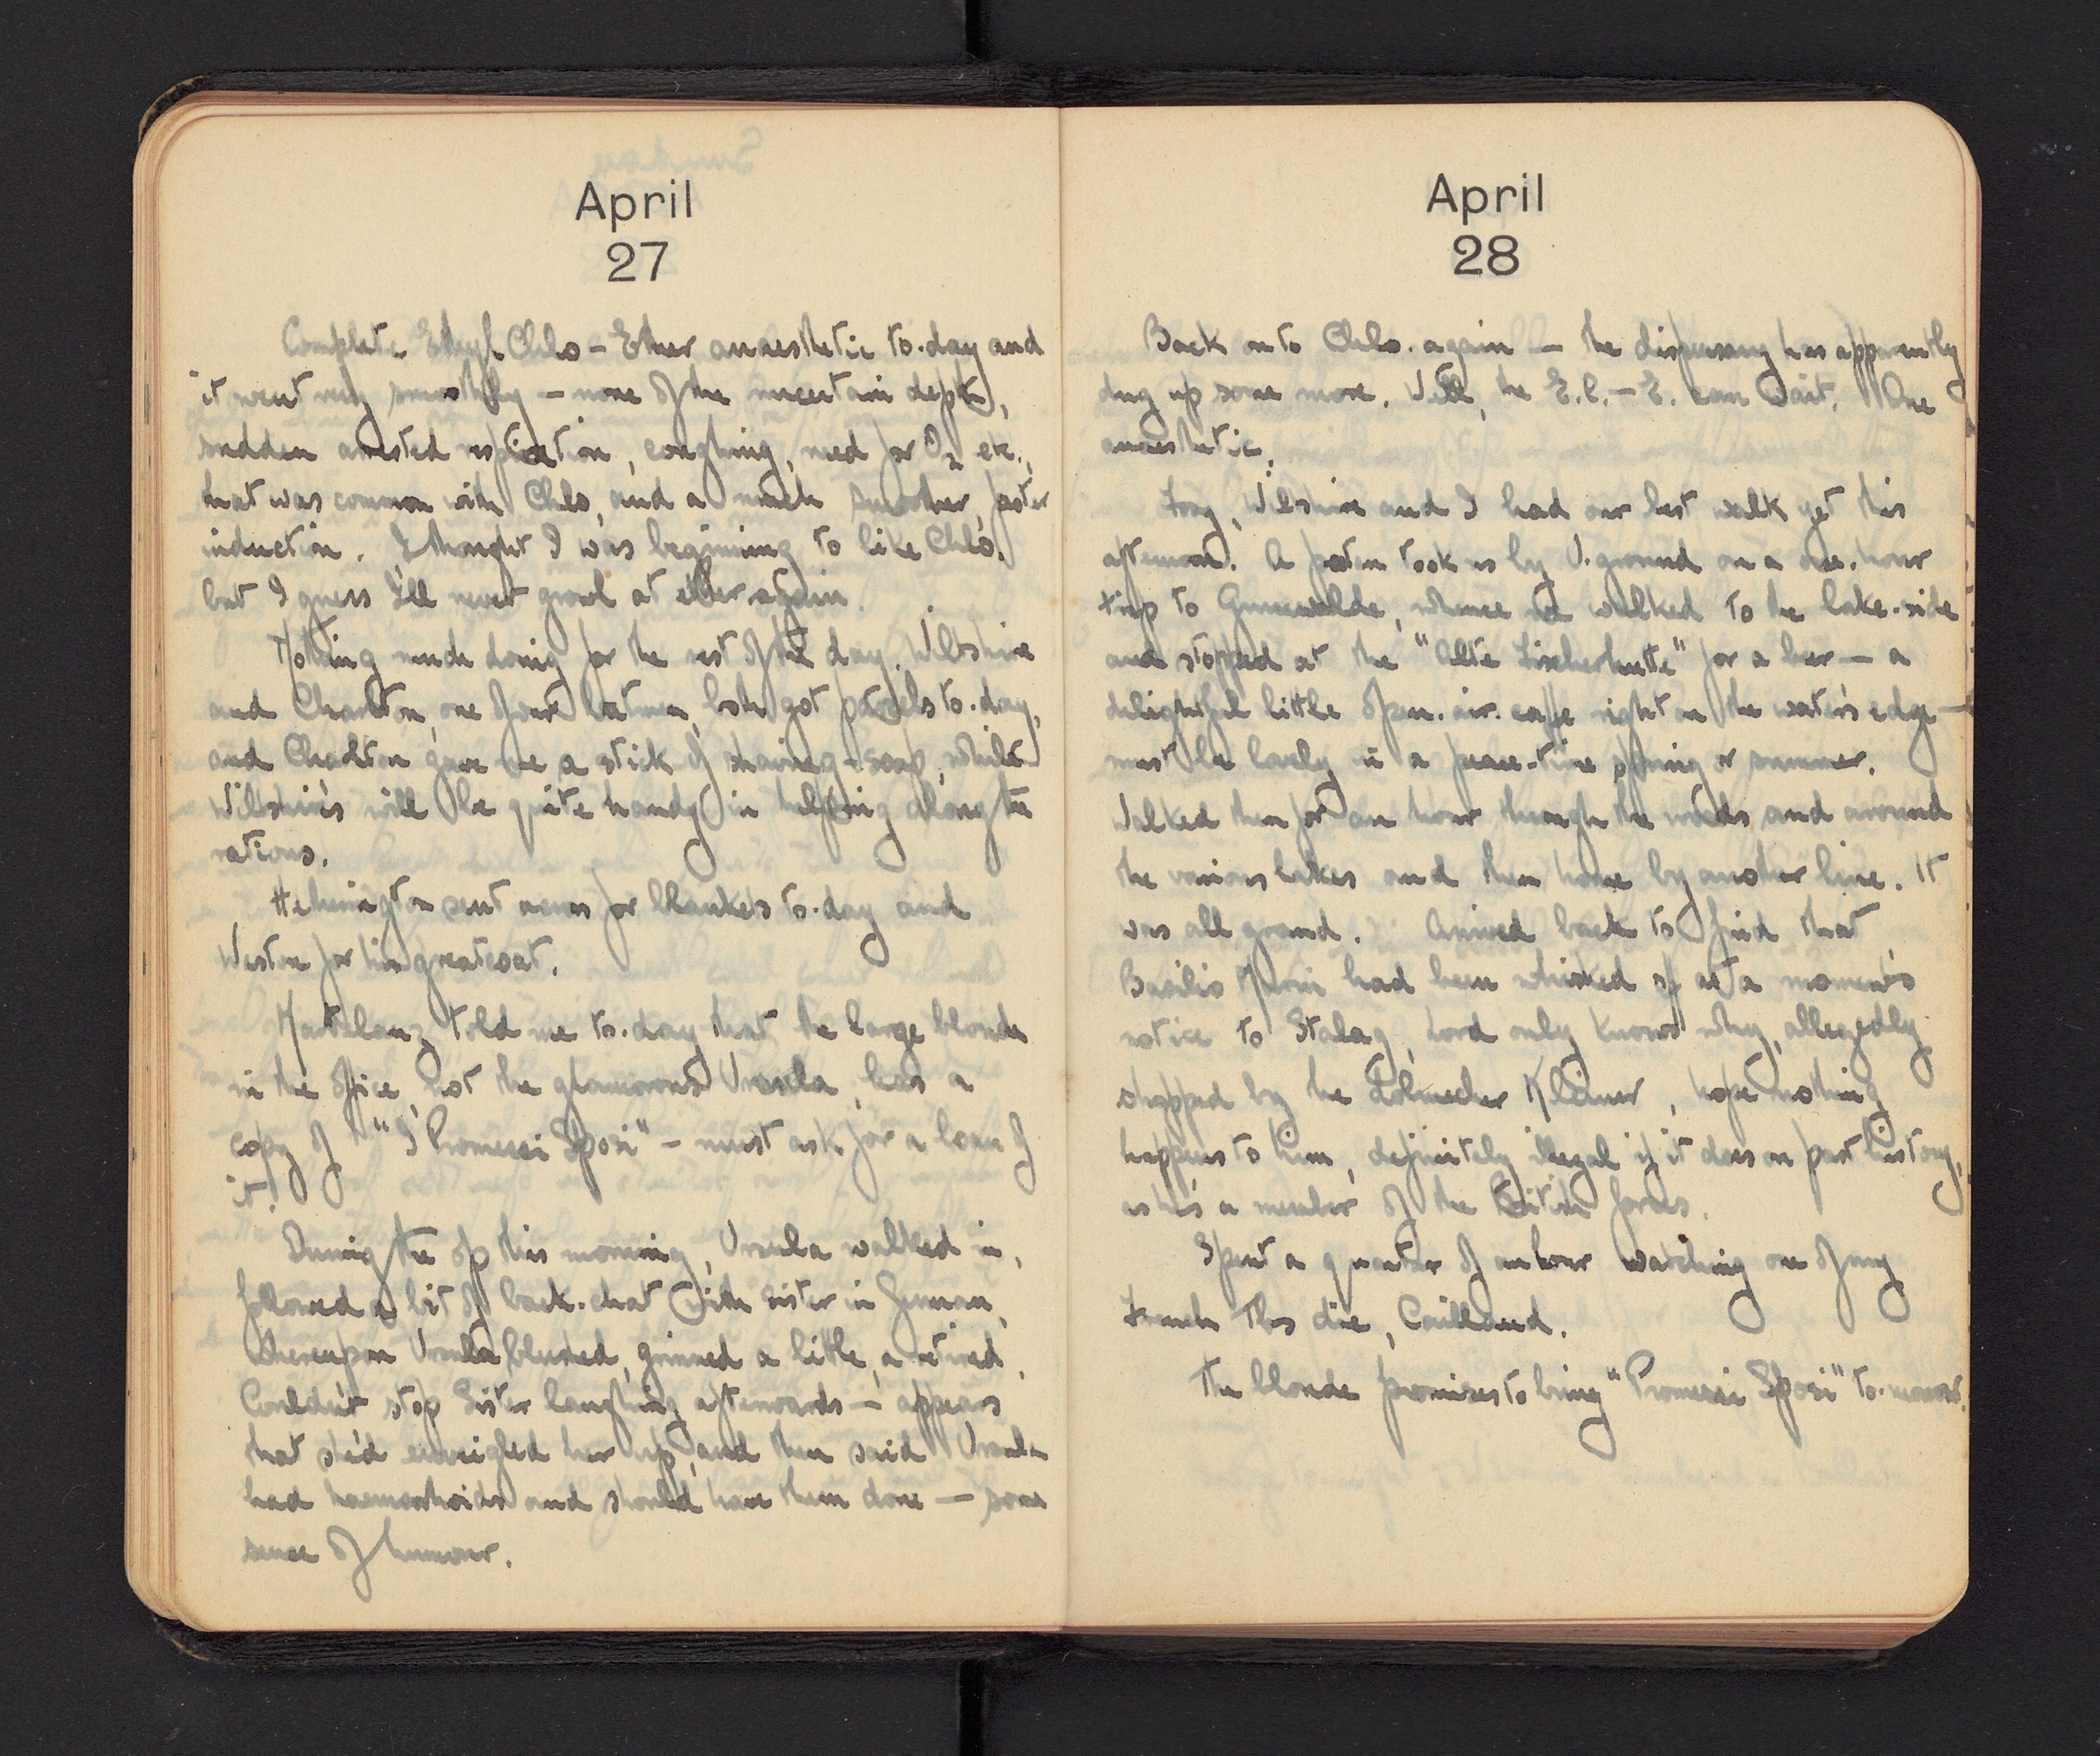 April
27
Complete Ethyl Chlo - Ether anaesthetic to-day and
it went very smoothly - none of the uncertain depth,
sudden arrested respiration, coughing, need for O2 etc.,
that was common with Chlo, and a much smoother, faster
induction. I thought I was beginning to like Chlo.
but I guess I'll never growl at ether again.
Nothing much doing for the rest of the day. Wiltshire
and Charlton, one of our batmen, both got parcels to-day,
and Charlton gave me a stick of shaving-soap, while
Wiltshire's will be quite handy in helping along the
rations.
Hetherington sent news for blankets to-day and
Weston for his greatcoat.
told me to-day that the large blonde
in the office, not the glamorous Ursula, has a
copy of "I Promessi Sposi" - must ask for a loan of
it.
During the op this morning, Ursula walked in,
followed a bit of back-chat with Sister in German,
whereupon Ursula blushed, grinned a little, & retired.
Couldn't stop Sister laughing afterwards - appears
that she'd weighed her up, and then said Ursula
had haemorrhoids and should have them done - some
sense of humour.
April
28
Back on to Chlo. again - the dispensary has apparently
dug up some more. Well, the E.C. - E. can wait. One
anaesthetic.
Tony, Wiltshire and I had our best walk yet this
afternoon. A posten took us by U. ground on a one-hour
trip to Grunewalde, whence we walked to the lake-side
and stopped at the "Alte Fischerhutte" for a beer - a
delightful little open-air-caffe right on the water's edge -
must be lovely in a peace-time spring or summer.
Walked then for an hour through the woods and around
the various lakes and then home by another line. It
was all grand. Arrived back to find that
Basilio had been whisked off at a moment's
notice to Stalag, Lord only knows why, allegedly
shopped by the Dolmecher, hope nothing
happens to him, definitely illegal if it does on past history,
as he's a member of the British forces.
Spent a quarter of an hour watching one of my
French Tbs die, Caillaud.
The blonde promises to bring "Promessi Sposi" to-morrow.